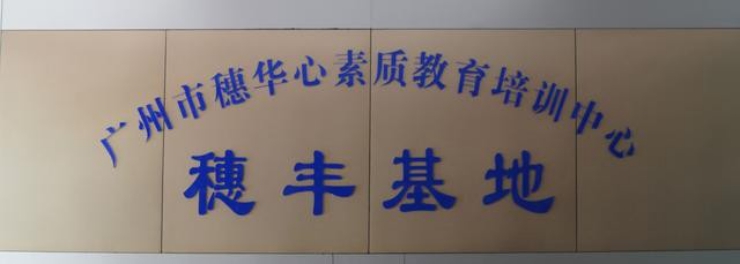 广州市穗华心素质教育培训中心
穗丰基地